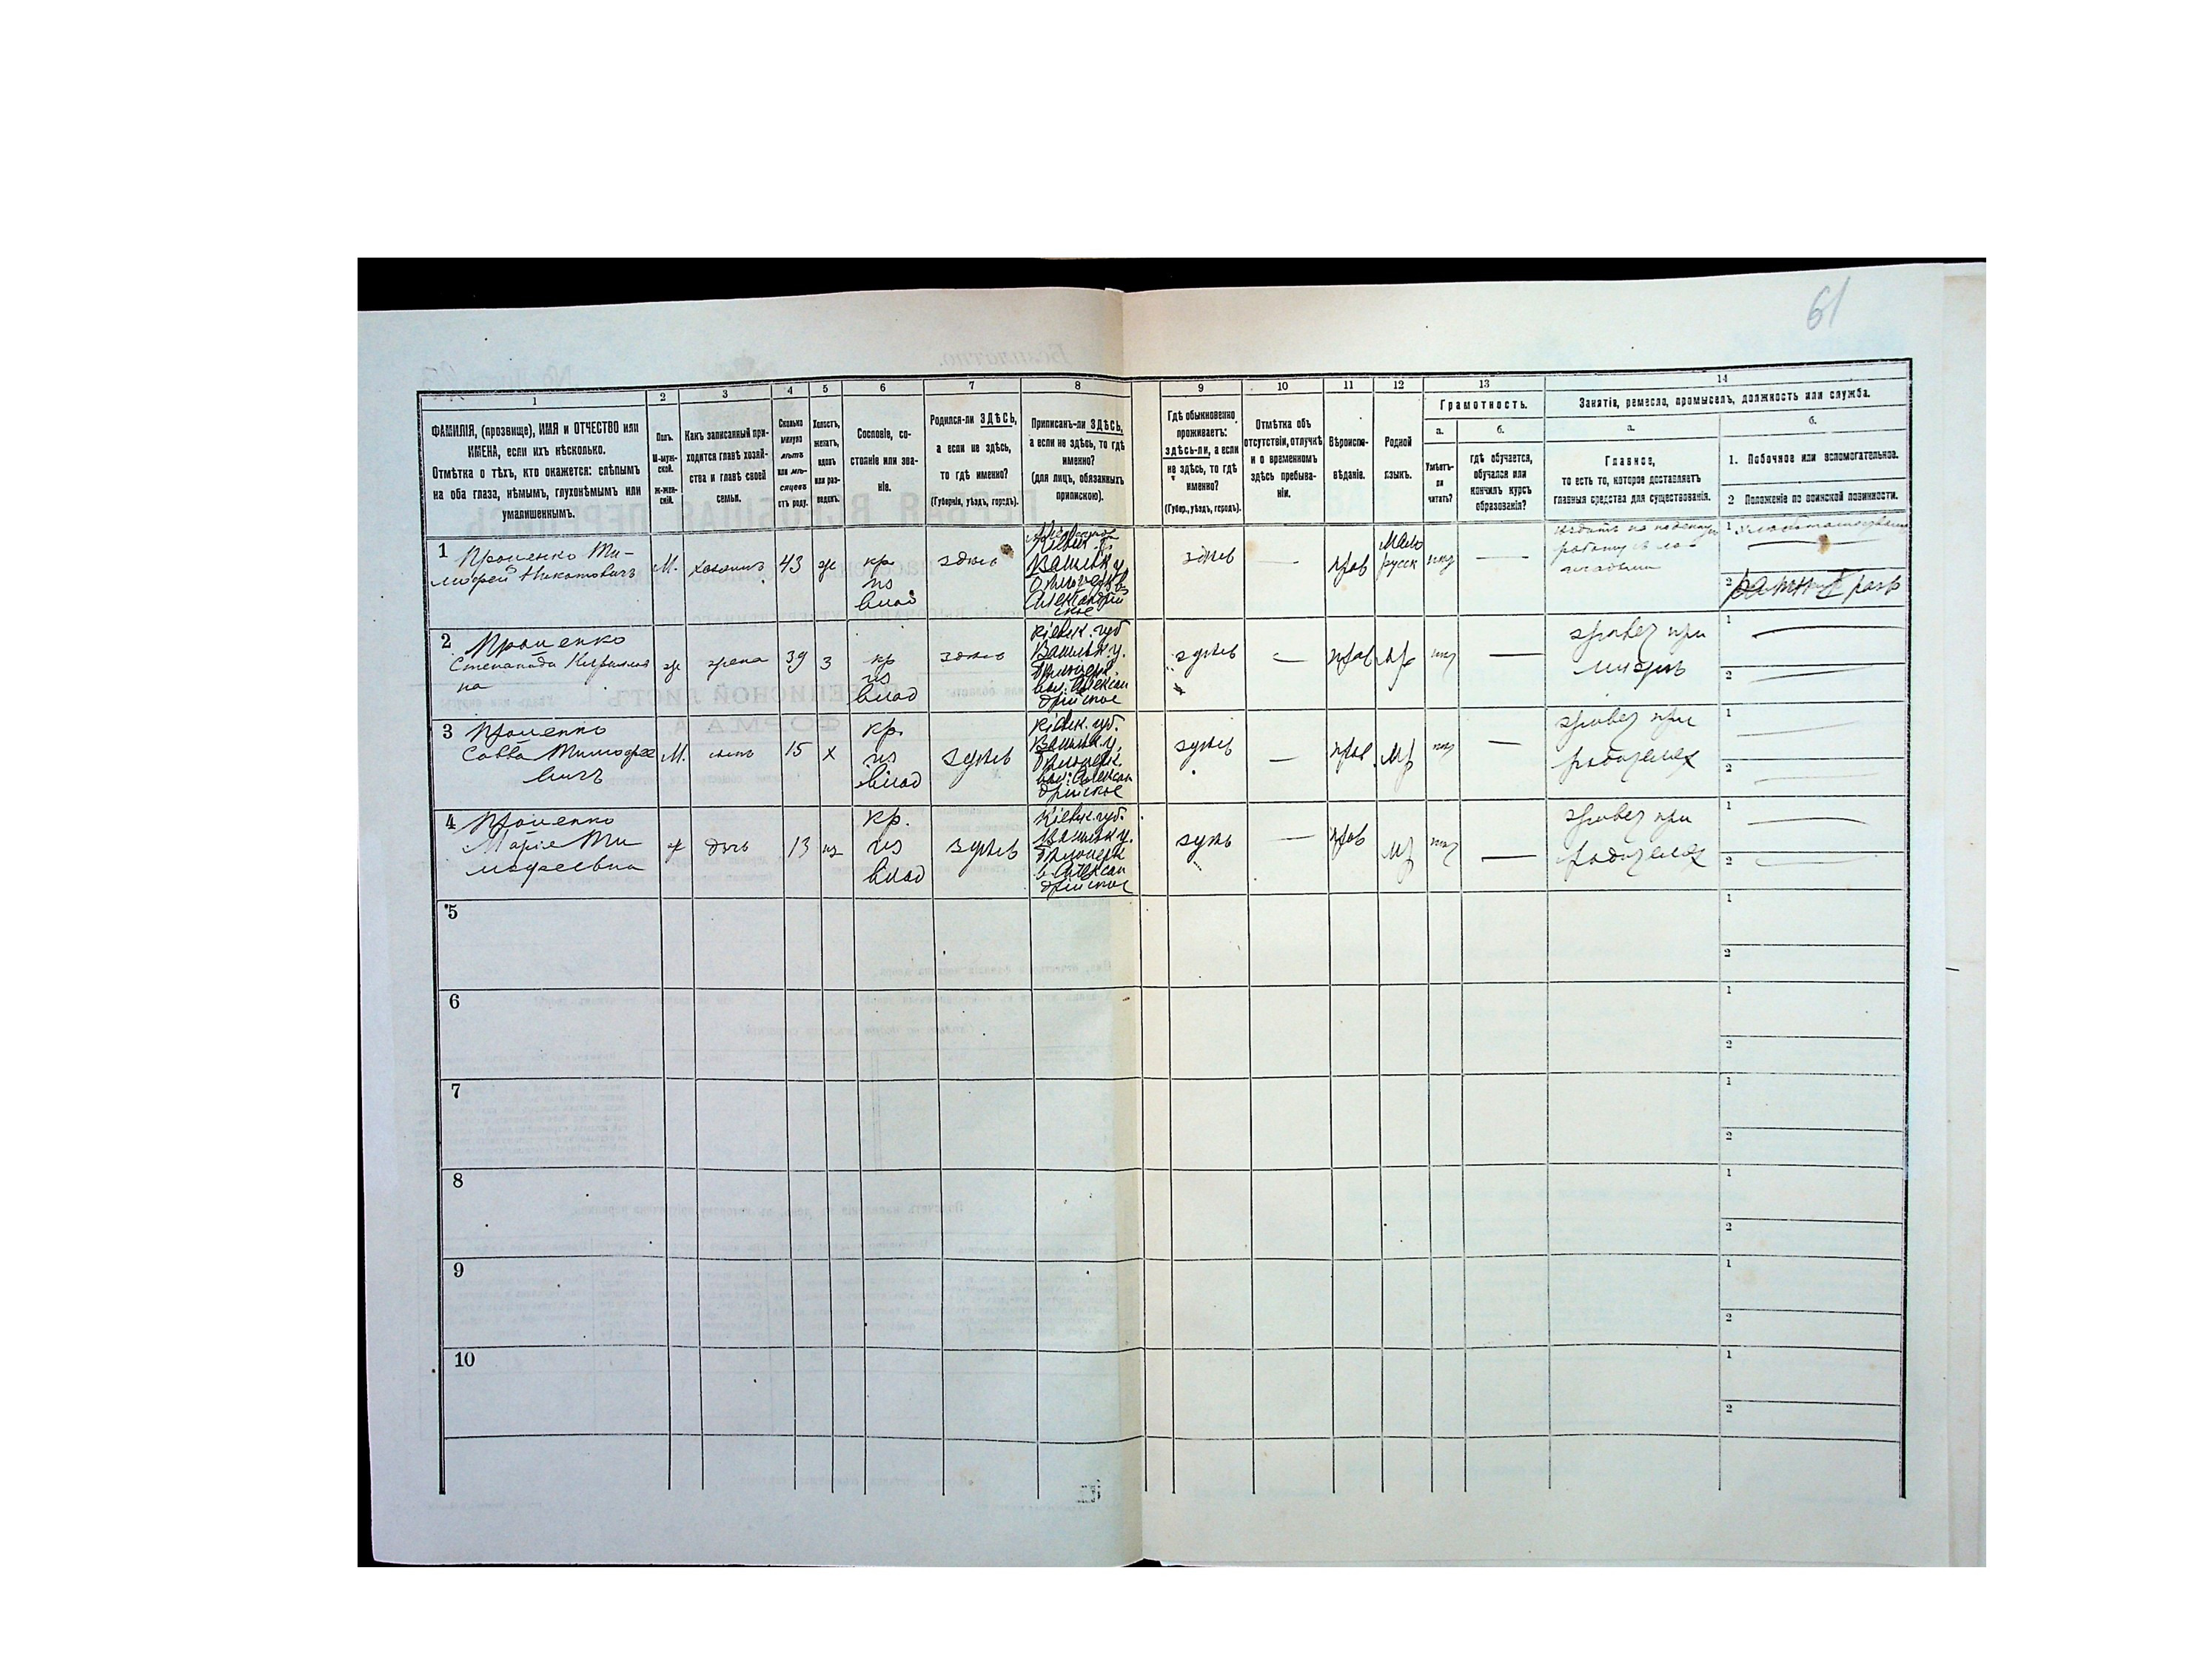 61
1
2
3
4
5
6
7
8
9
10
11
12
13
14
ФАМИЛІЯ, (прозвище), ИМЯ и ОТЧЕСТВО или
ИМЕНА, если ихъ нѣсколько.
Отмѣтка о тѣхъ, кто окажется: слѣпымъ
на оба глаза, нѣмымъ, глухонѣмымъ или
умалишеннымъ.
Полъ.
М-муж-
ской.
ж-жен-
скій.
Какъ записанный при-
ходится главѣ хозяй-
ства и главѣ своей
семьи.
Сколько
минуло
лѣтъ
или мѣ-
сяцевъ
отъ роду.
Холостъ,
женатъ,
вдовъ
или раз-
веденъ.
Сословіе, со-
стояніе или зва-
ніе.
Родился-ли ЗДѢСЬ,
а если не здѣсь,
то гдѣ именно?
(Губернія, уѣздъ, городъ).
Приписанъ-ли ЗДѢСЬ,
а если не здѣсь, то гдѣ
именно?
(для лицъ, обязанныхъ
припискою).
Гдѣ обыкновенно
проживаетъ:
здѣсь-ли, а если
не здѣсь, то гдѣ
именно?
(Губер., уѣздъ, городъ).
Отмѣтка объ
отсутствіи, отлучкѣ
и о временномъ
здѣсь пребыва-
ніи.
Вѣроиспо-
вѣданіе.
Родной
языкъ.
Грамотность.
а.
Умѣетъ-
ли
читать?
б.
гдѣ обучается,
обучался или
кончилъ курсъ
образованія?
Занятіе, ремесло, промыселъ, должность или служба.
а.
Главное,
то есть то, которое доставляетъ
главныя средства для существованія.
б.
1. Побочное или вспомогательное.
2 Положеніе по воинской повинности.
1 Проценко Ти-
мофей
М.
хозяинъ
43
ж
кр.
из
влад
здѣсь
Кіевск. г.
Васильк. у.
Александрій
ское
здѣсь
—
прав
Мало
русск
нѣт
—
работу
1
2 ратн II разр
2 Проценко
Степанида Кирилов
на
ж
жена
39
з
кр
из
влад
здѣсь
Кіевск. губ
Васильк. у.
вол: Алексан
дрійское
здѣсь
—
прав
мр
нѣт
—
живет при
мужѣ
1
2
3 Проценко
Савва Тимофее
вичъ
М.
сынъ
15
х
кр.
из
влад
здѣсь
Кіевск. губ.
Васильк. у.
вол: Алексан
дрійское
здѣсь
—
прав
мр
нѣт
—
живет при
родителях
1
2
4 Проценко
Марія Ти
мофеевна
ж
дочь
13
кр.
из
влад
здѣсь
Кіевск. губ.
Васильк. у.
в. Алексан
дрійское
здѣсь
—
прав
мр
нѣт
—
живет при
родителях
1
2
5
1
2
6
1
2
7
1
2
8
1
2
9
1
2
10
1
2